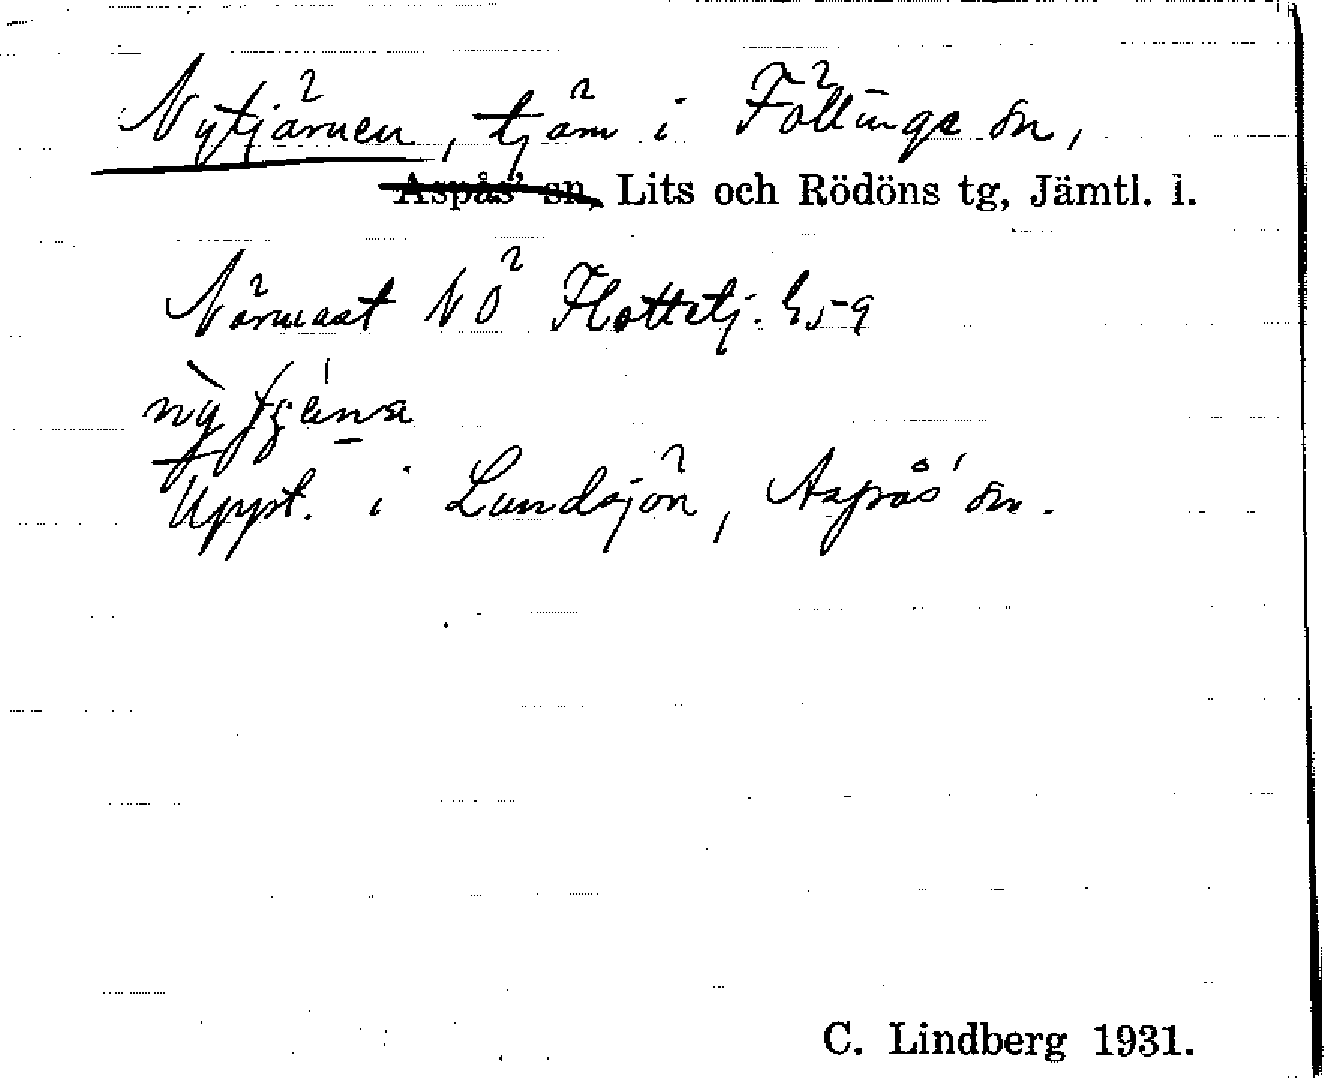 Nytjärnen, tjärn i Föllinge sn,
Aspås' sn, Lits och Rödöns tg, Jämtl. l.
Närmast NÖ Flottatj.
Uppt. i Landsjön, Aspås' sn.
C. Lindberg 1931.